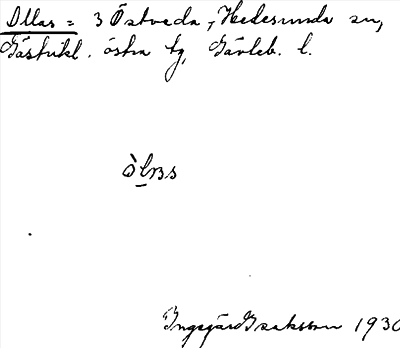 Ollas = 3 Östveda, Hedesunda sn,
Gästrikl. östra tg, Gävleb. l.
Ingegärd Isaksson 1930